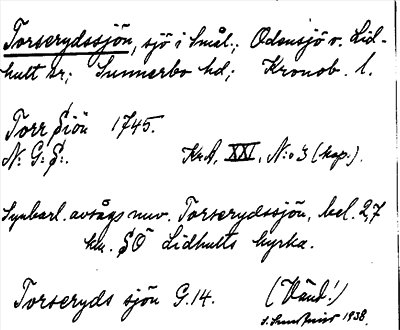 Torserydssjön, sjö i Smål.; Odensjö o. Lid-
hult sr; Sunnerbo hd; Kronob. l.
Torr Siön 1745.
N: G: S:. KrA, XXI, N:o 3 (kop.).
Synbarl. avsågs nuv. Torserydssjön, bel. 2,7
km. SO Lidhults kyrka.
Torseryds sjön G. 14. (Vänd!)
1938.